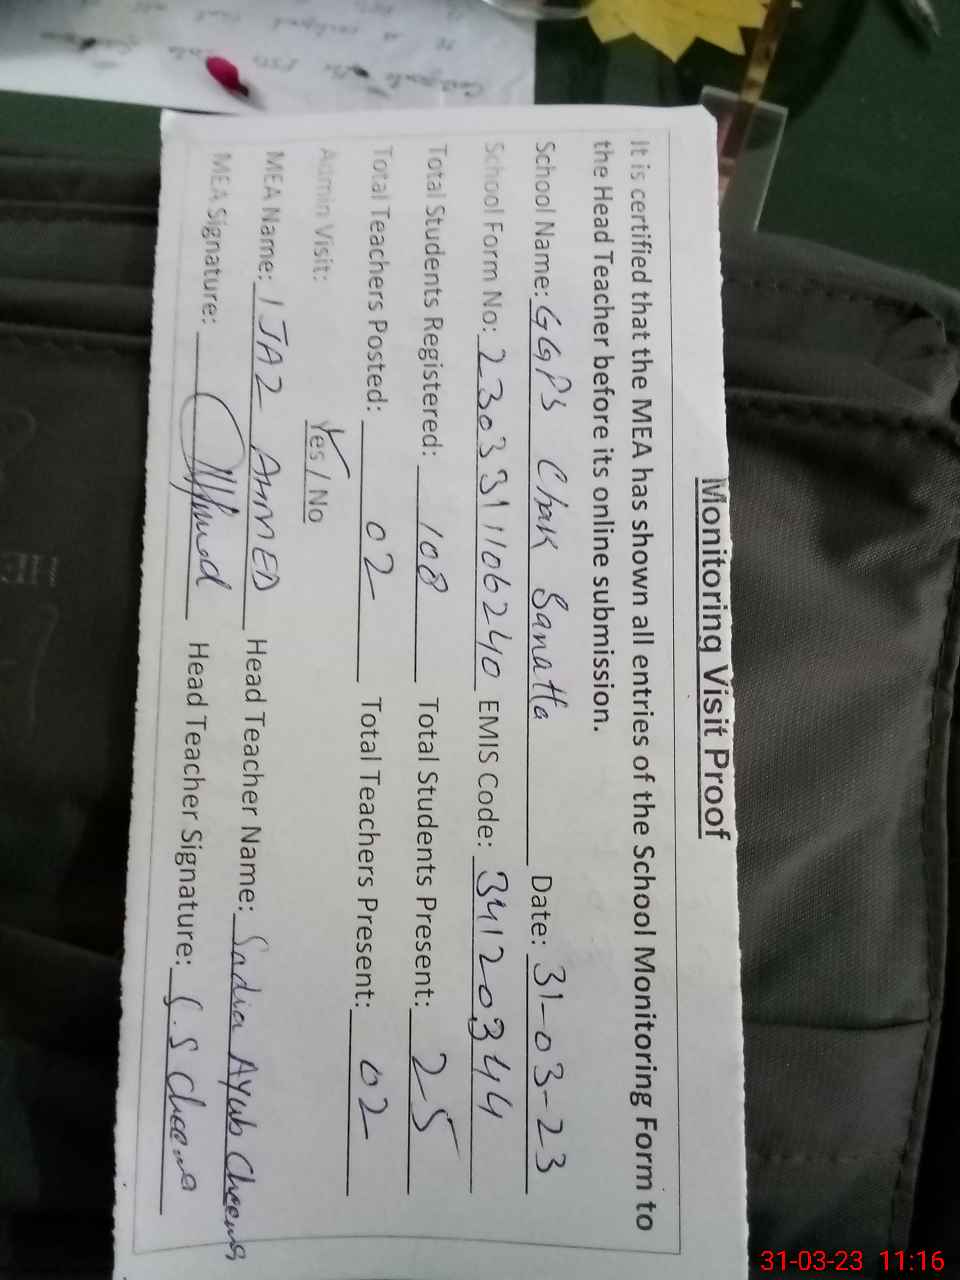 Monitoring Visit Proof
It is certified that the MEA has shown all entries of the School Monitoring Form to
the Head Teacher before its online submission.
School Name: GGPS Chak Sanatta Date: 31-03-23
School Form No: 230331106240 EMIS Code: 34120344
Total Students Registered: 108 Total Students Present: 25
Total Teachers Posted: 02 Total Teachers Present: 02
Admin Visit: Yes / No
MEA Name: IJAZ AHMED Head Teacher Name: Sadia Ayub Cheema
MEA Signature: Head Teacher Signature: S Cheema
31-03-23 11:16